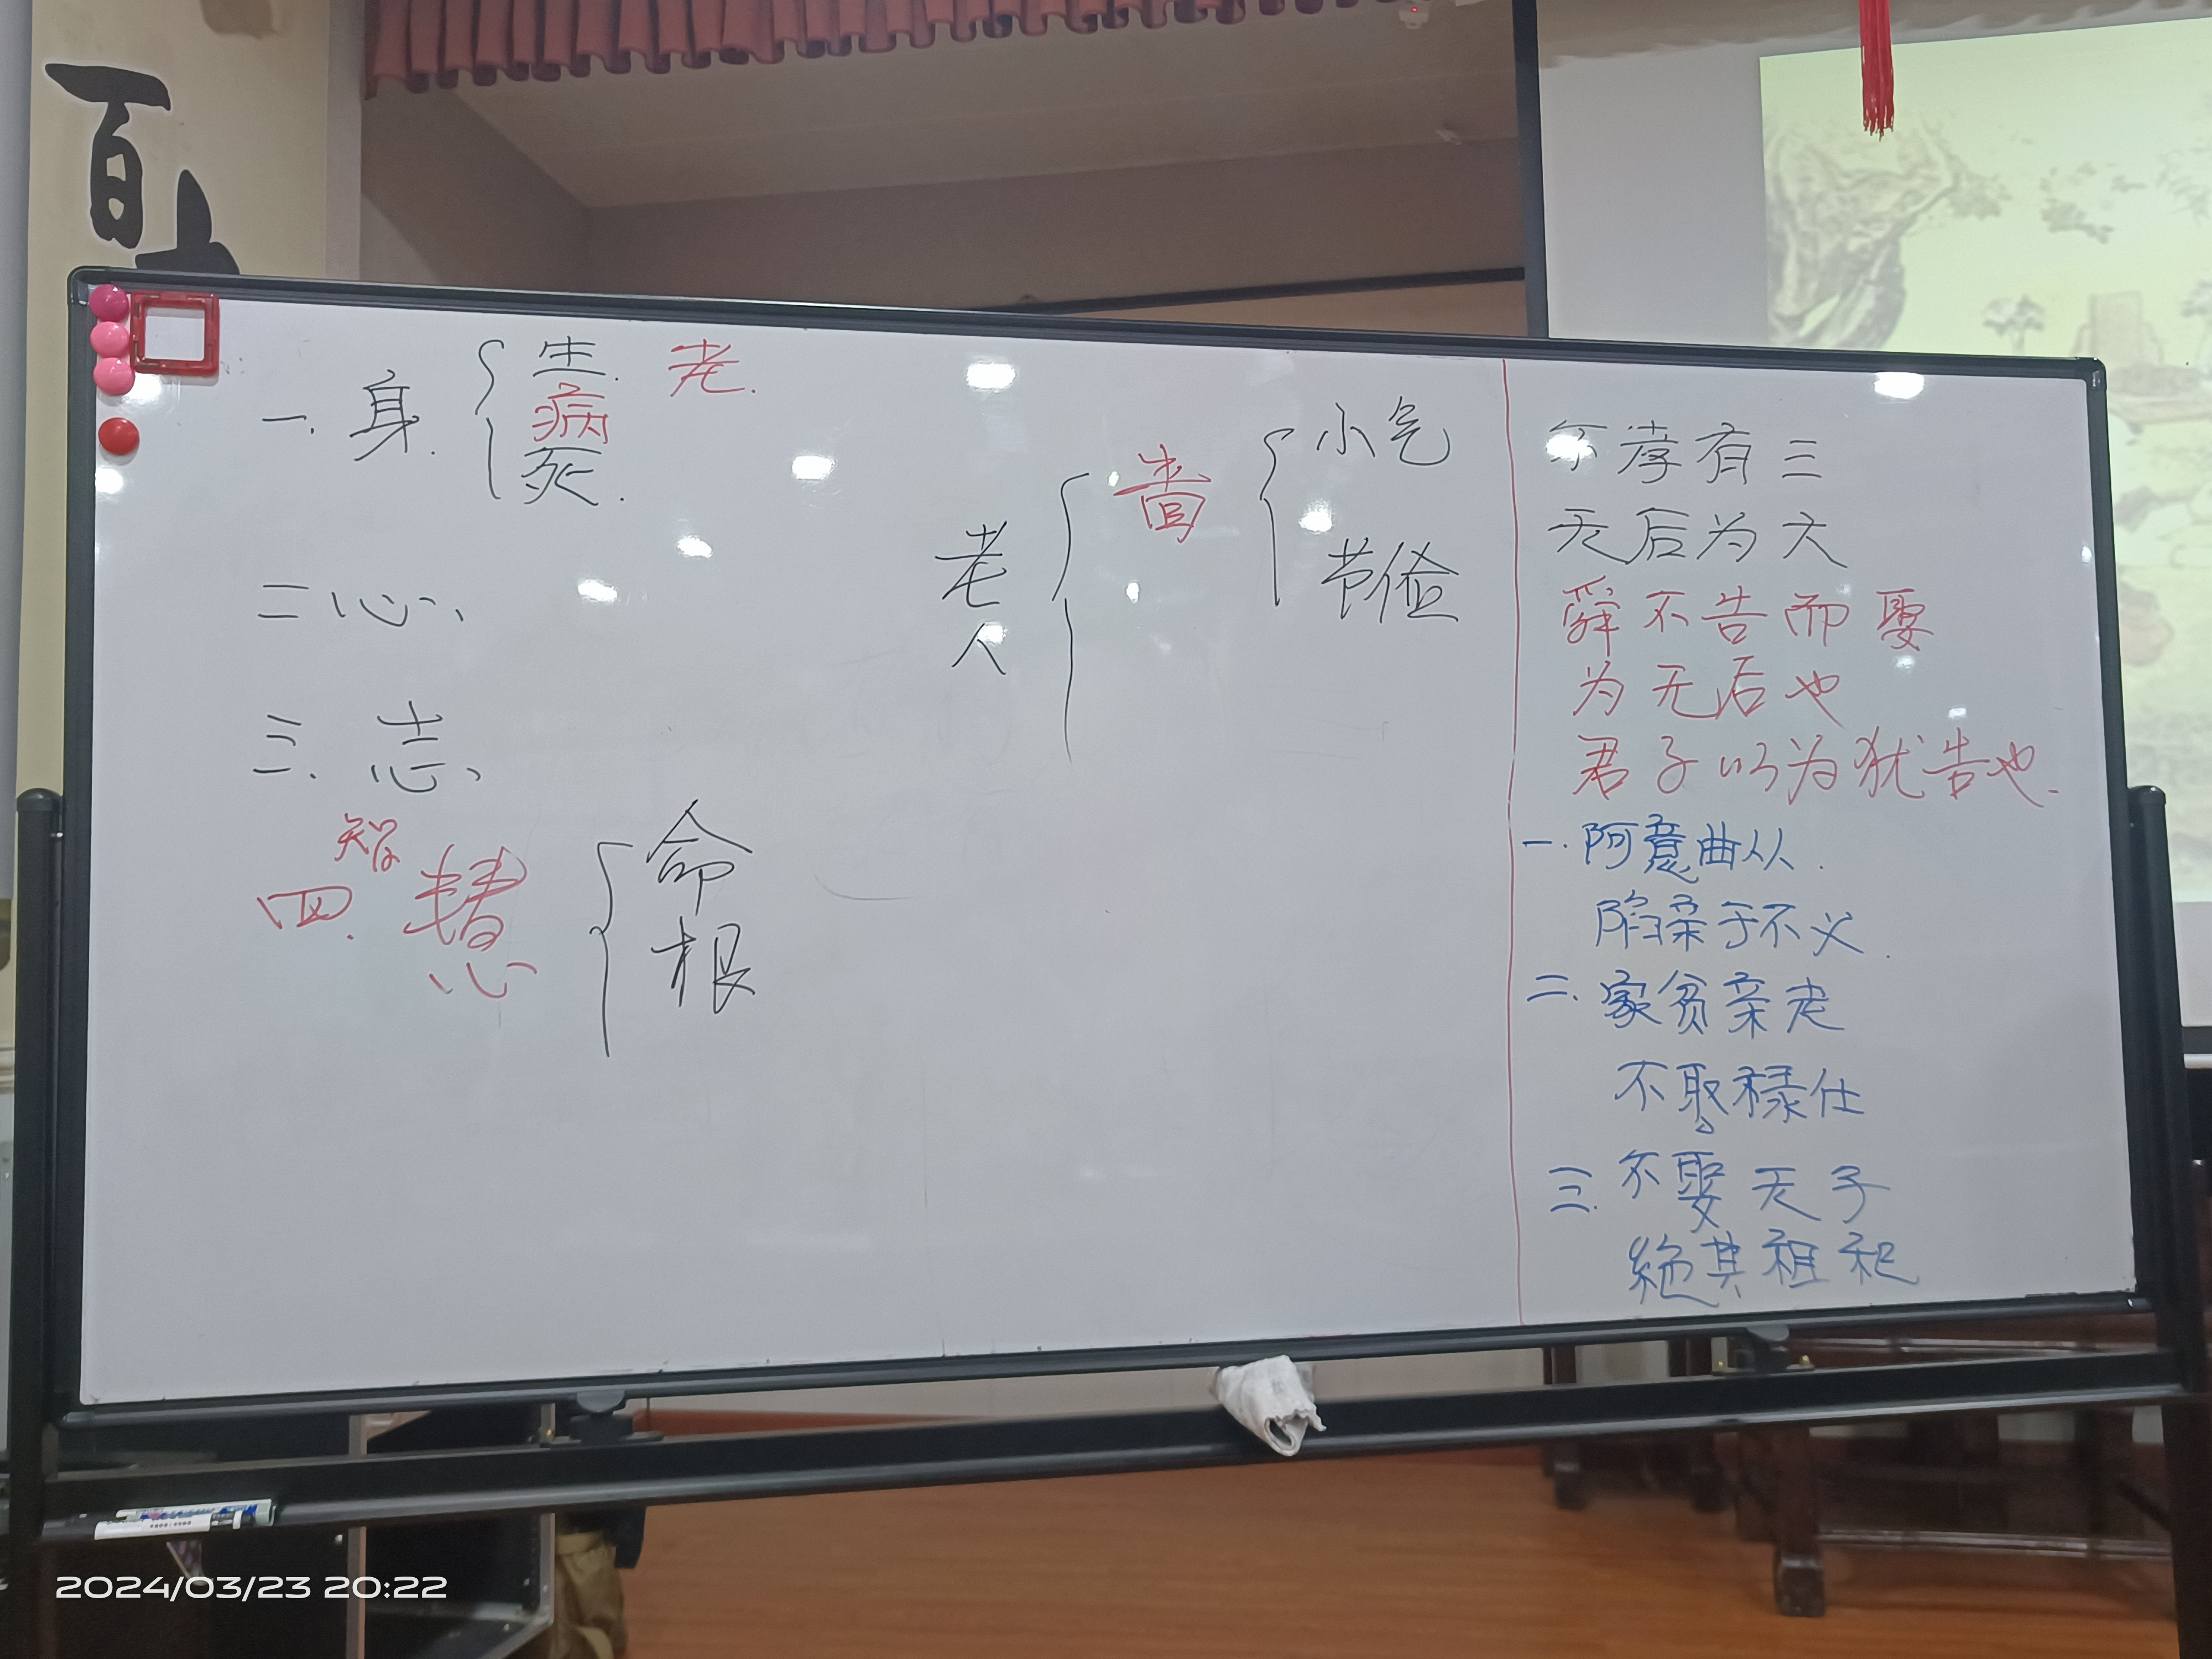 百
一. 身. 生. 老.
病
死.
二 心、
三. 志、
智
四. 慧
命
根
老
人
啬
小气
节俭
不孝有三
无后为大
舜不告而娶
为无后也
君子以为犹告也.
一. 阿意曲从.
陷亲于不义.
二. 家贫亲老
不取禄仕
三. 不娶无子
絶其祖祀
2024/03/23 20:22